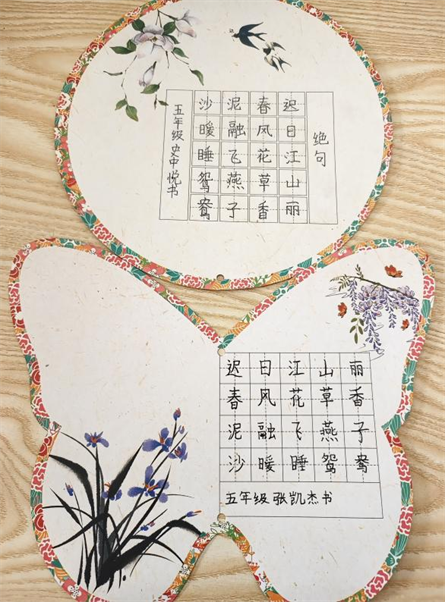 绝句
迟日江山丽
春风花草香
泥融飞燕子
沙暖睡鸳鸯
五年级 史中悦书
迟日江山丽
春风花草香
泥融飞燕子
沙暖睡鸳鸯
五年级 张凯杰书